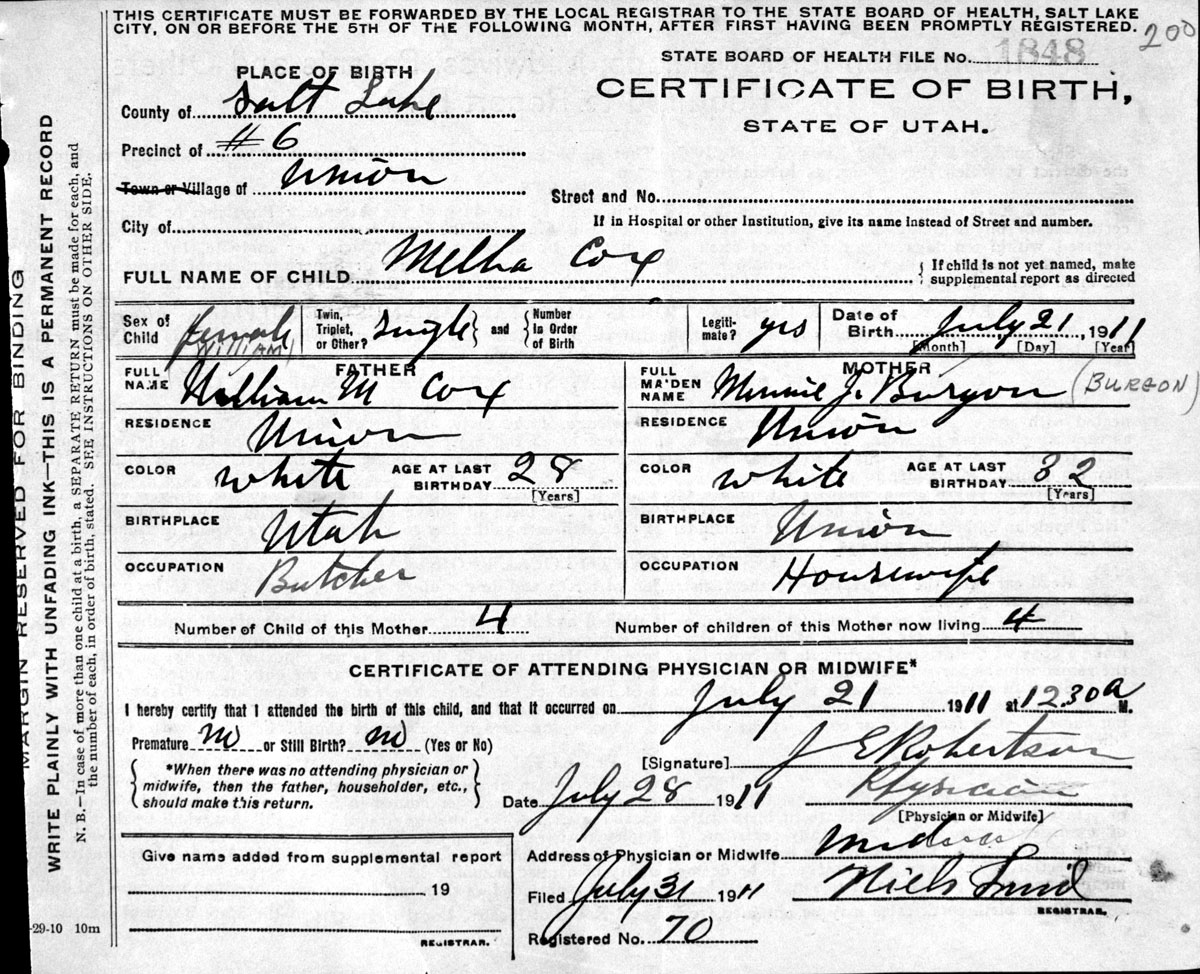 THIS CERTIFICATE MUST BE FORWARDED BY THE LOCAL REGISTRAR TO THE STATE BOARD OF HEALTH, SALT LAKE
CITY, ON OR BEFORE THE 5TH OF THE FOLLOWING MONTH, AFTER FIRST HAVING BEEN PROMPTLY REGISTERED.
200
STATE BOARD OF HEALTH FILE No. 1848
PLACE OF BIRTH
CERTIFICATE OF BIRTH,
STATE OF UTAH.
County of Salt Lake
Precinct of #6
Town or Village of Union
Street and No.
City of
If in Hospital or other Institution, give its name instead of Street and number.
FULL NAME OF CHILD Melba Cox
{ If child is not yet named, make
supplemental report as directed
Sex of Child female
Twin, Triplet, or Other? single } and { Number In Order of Birth
Legiti- mate? yes
Date of Birth July 21, 1911
[Month] [Day] [Year]
(WILLIAM)
FATHER
FULL NAME William M Cox
MOTHER
FULL MA'DEN NAME Minnie J. Burgon (BURGON)
RESIDENCE Union
RESIDENCE Union
COLOR white AGE AT LAST BIRTHDAY 28 [Years]
COLOR white AGE AT LAST BIRTHDAY 32 [Years]
BIRTHPLACE Utah
BIRTHPLACE Union
OCCUPATION Butcher
OCCUPATION Housewife
Number of Child of this Mother 4
Number of children of this Mother now living 4
CERTIFICATE OF ATTENDING PHYSICIAN OR MIDWIFE*
I hereby certify that I attended the birth of this child, and that it occurred on July 21 1911 at 12.30 a M.
Premature no or Still Birth? no (Yes or No)
{ *When there was no attending physician or
midwife, then the father, householder, etc.,
should make this return. }
[Signature] J E Robertson
Date July 28 1911 Physician
[Physician or Midwife]
Give name added from supplemental report
19
REGISTRAR.
Address of Physician or Midwife
Filed July 31 1911 Niels Lind
REGISTRAR.
Registered No. 70
-29-10 10m
MARGIN RESERVED FOR BINDING
WRITE PLAINLY WITH UNFADING INK—THIS IS A PERMANENT RECORD
N. B.—In case of more than one child at a birth, a SEPARATE RETURN must be made for each, and
the number of each, in order of birth, stated. SEE INSTRUCTIONS ON OTHER SIDE.